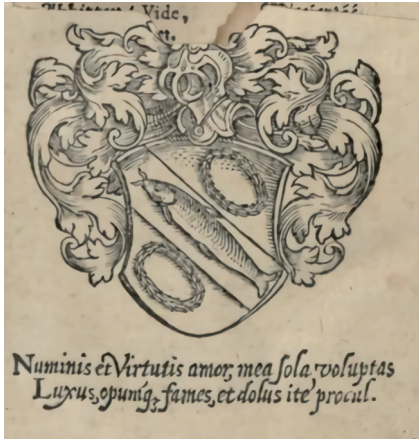 Vide,
Numinis et Virtutis amor, mea sola voluptas
Luxus, opumq, fames, et dolus ite procul.